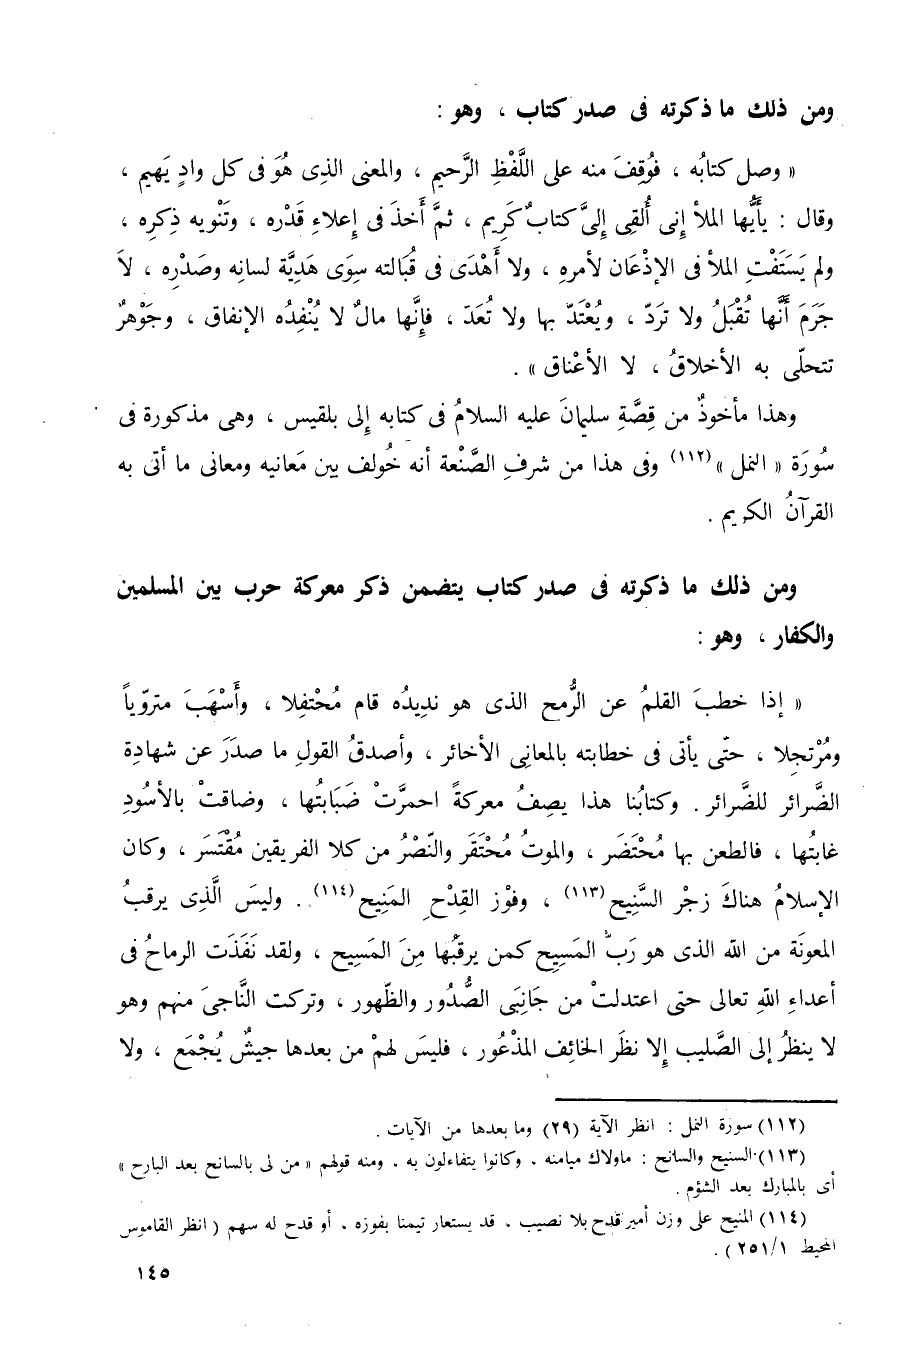 ومن ذلك ما ذكرته فى صدر كتاب ، وهو :
« وصل كتابُه ، فوُقِفَ منه على اللَّفْظِ الرَّحيم ، والمعنى الذِى هُوَ فى كل وادٍ يَهيم ،
وقال : يأيُّها الملأ إنى أُلقِى إلىَّ كتابٌ كَرِيم ، ثمَّ أَخذَ فى إعلاءِ قَدْره ، وتَنْويه ذِكرِه ،
ولم يَسَتَفْتِ الملأ فى الإذْعَان لأمرهِ ، ولا أَهْدَى فى قُبَالته سِوَى هَدِيَّة لسانِه وصَدْرِه ، لاَ
جَرَمَ أَنَّها تُقْبَلُ ولا تَردّ ، ويُعْتَدّ بها ولا تُعَدّ ، فإنَّها مالٌ لا يُنْفِدُه الإنفاق ، وجَوْهرٌ
تتحلّى به الأخلاقُ ، لا الأعْناق » .
وهذا مأخوذٌ من قِصَّةِ سليمانَ عليه السلامُ فى كتابه إلى بلقيس ، وهى مذكورة فى
سُورَة « النمل »(١١٢) وفى هذا من شرفِ الصَّنْعة أنه خُولف بين مَعانيه ومعانى ما أتى به
القرآنُ الكريم .
ومن ذلك ما ذكرته فى صدر كتاب يتضمن ذكر معركة حرب بين المسلمين
والكفار ، وهو :
« إذا خطبَ القلمُ عن الرُّمح الذى هو نديدُه قام مُحْتفِلا ، وأَسْهَبَ متروّياً
ومُرْتجلا ، حتّى يأتى فى خطابته بالمعانِى الأخائر ، وأصدقُ القولِ ما صدَرَ عن شهادةِ
الضَّرائر للضَّرائر . وكتابُنا هذا يصِفُ معركةً احمرَّتْ ضَبَابتُها ، وضاقتْ بالأسُودِ
غابتُها ، فالطعن بها مُحْتَضَر ، والموتُ مُحْتَقَر والنّصْرُ من كلا الفريقين مُقْتَسَر ، وكان
الإسلامُ هناكَ زجْر السَّنِيح(١١٣) ، وفوْز القِدْحِ المَنِيح(١١٤) . وليسَ الَّذِى يرقبُ
المعونَة من الله الذى هو رَبّ المَسِيح كمن يرقبُها مِنَ المَسِيح ، ولقد نَفَذَت الرماحُ فى
أعداءِ اللهِ تعالى حتى اعتدلتْ من جَانِبَى الصُّدُور والظّهور ، وتركت النَّاجىَ منهم وهو
لا ينظرُ إلى الصَّليب إلا نظَر الخائِف المذْعُور ، فليسَ لهمْ من بعدها جيشٌ يُجْمَع ، ولا
(١١٢) سورة النمل : انظر الآية (٢٩) وما بعدها من الآيات .
(١١٣) السنيح والسانح : ماولاك ميامنه ، وكانوا يتفاءلون به ، ومنه قولهم « من لى بالسانح بعد البارح »
أى بالمبارك بعد الشؤم .
(١١٤) المنيح على وزن أمير قدح بلا نصيب ، قد يستعار تيمنا بفوزه ، أو قدح له سهم ( انظر القاموس
المحيط ٢٥١/١ ) .
١٤٥